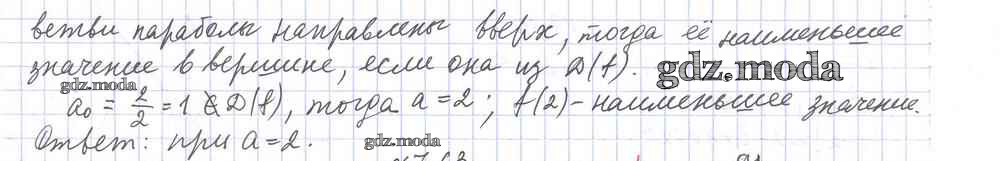 ветви параболы направлены вверх, тогда её наименьшее
значение в вершине, если она из D(f). gdz.moda
gdz.moda
a₀ = 2/2 = 1 ∉ D(f), тогда a = 2; f(2) - наименьшее значение.
Ответ: при a = 2. gdz.moda